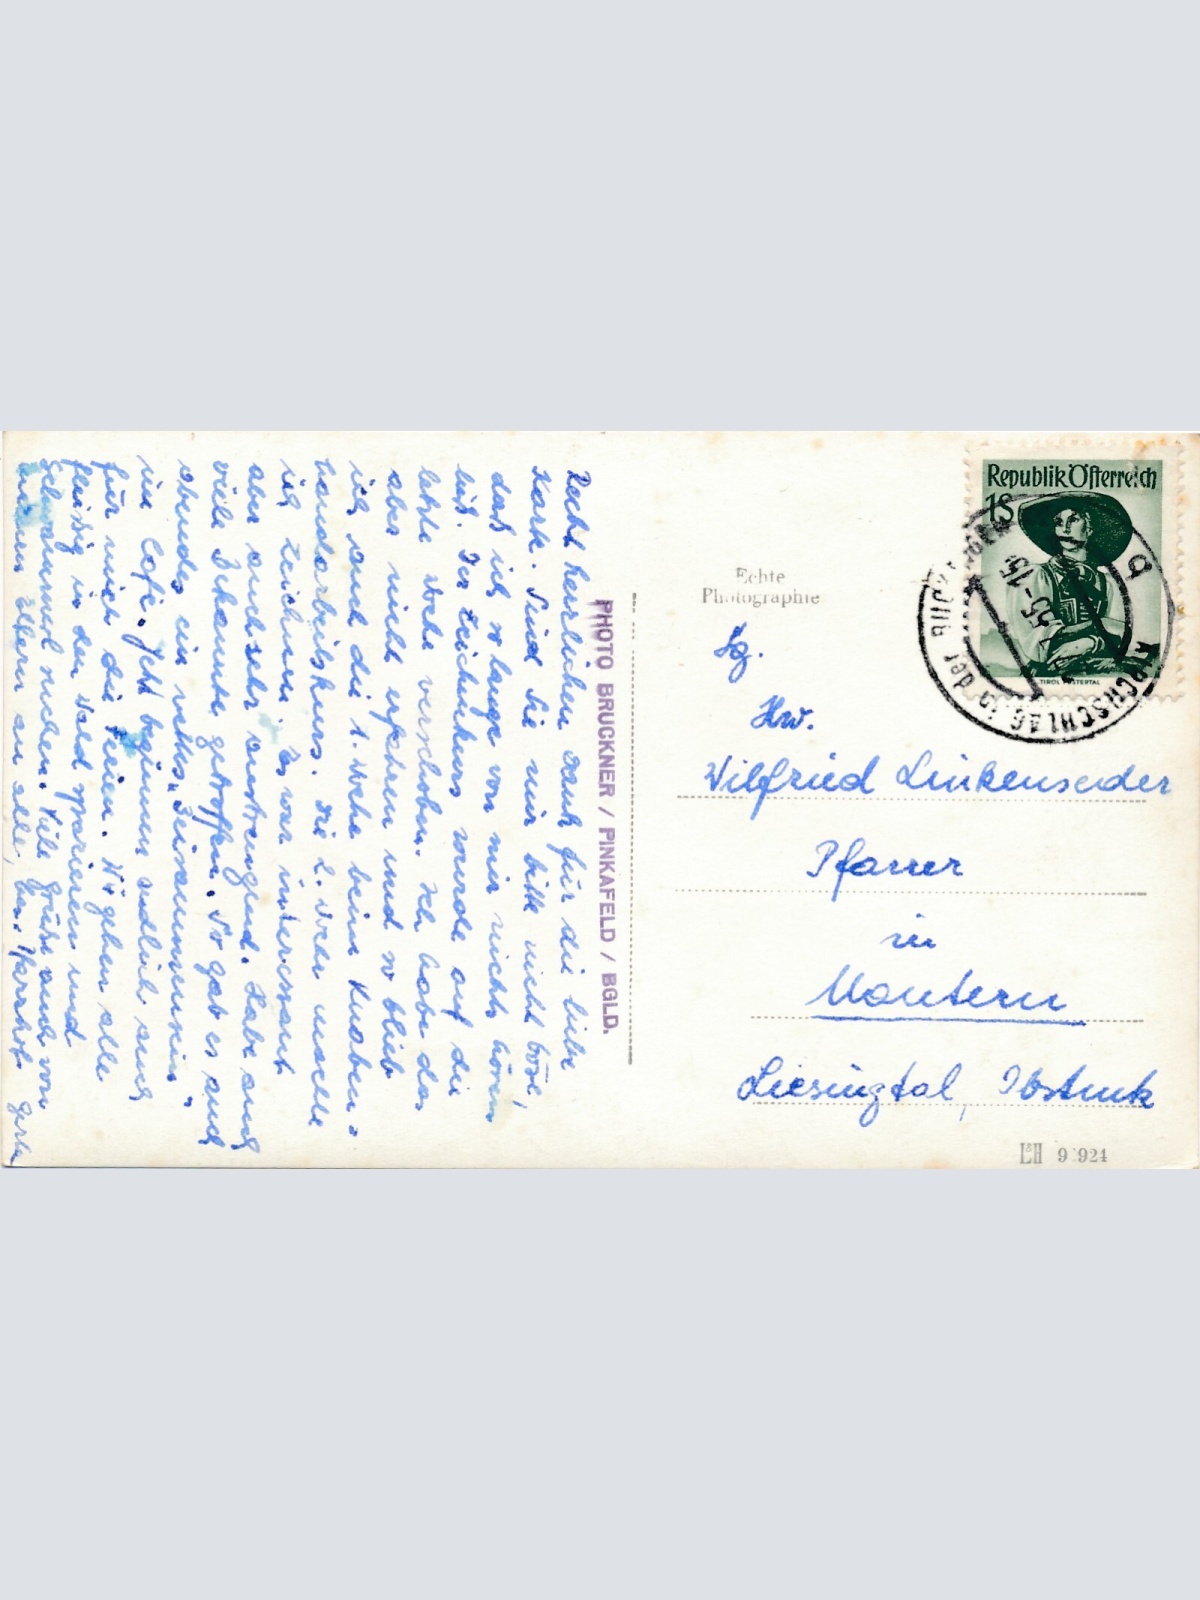 Recht herzlichen Dank für die liebe
Karte. Sind Sie mir bitte nicht böse,
daß ich so lange von mir nichts hören
ließ. Der Zeichenkurs wurde auf die
letzte Woche verschoben. Ich habe das
aber nicht erfahren und so blieb
ich auch die 1. Woche beim Knaben-
handarbeitskurs. Die 2. Woche machte
ich Zeichnen. Es war interessant
aber auch sehr anstrengend. Habe auch
viele Bekannte getroffen. So gab es auch
abends ein nettes „Beisammensein"
im Café. Jetzt beginnen endlich auch
für mich die Ferien. Wir gehen alle
fleißig in den Wald spazieren und
Schwammerl suchen. Viele Grüße auch von
meinen Eltern an alle, bes. Pfarrhof Gerta
PHOTO BRUCKNER / PINKAFELD / BGLD.
Echte
Photographie
Republik Österreich
1S
TIROL PUSTERTAL
KIRCHSCHLAG in der
55-15
b
Hw.
Wilfried Linkenseder
Pfarrer
in
Mautern
Liesingtal, Obstmk
L&H